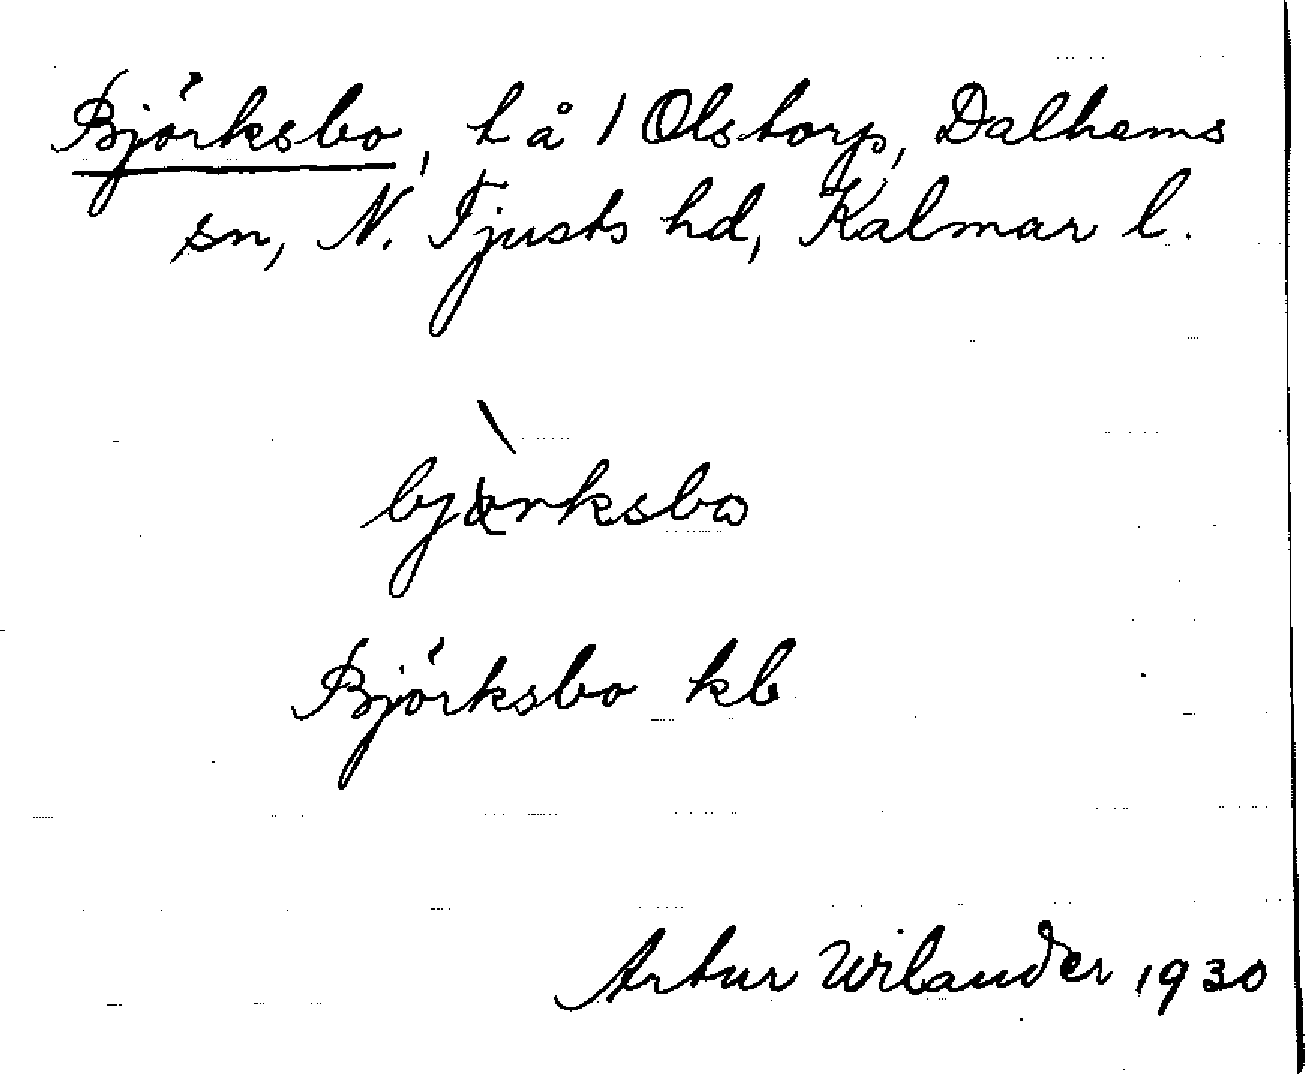 Björksbo, t å / Olstorp, Dalhems
sn, N. Tjusts hd, Kalmar l.
bjòrksbo
Björksbo kb
Artur Wilander 1930